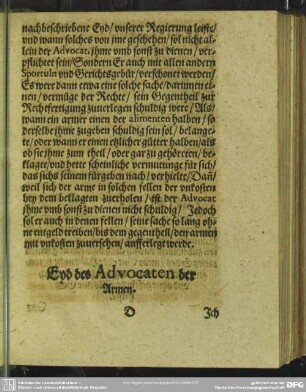 nachbeschriebene Eyd/ vnserer Regierung leiste/
vnd wann solches von jme geschehen/ sol nicht al-
lein der Advocat jhme vmb sonst zu dienen/ ver-
pflichtet sein/ Sondern Er auch mit allen andern
Sportuln vnd Gerichtsgebür/ verschonet werden/
Es were dann etwa eine solche sache/ darinnen ei-
nen/ vermüge der Rechte/ sein Gegentheil zur
Rechtfertigung zuuerlegen schuldig were/ Als/
wann ein armer einen der alimenten halben/ so
derselbe jhme zugeben schuldig sein sol/ belange-
te/ oder wann er einen etzlicher gütter halben/ als
ob sie jhme zum theil/ oder gar zu gehöreten/ be-
klagte/ vnd hette scheinliche vermutunge für sich/
das sichs seinem fürgeben nach/ verhielte/ Dañ/
weil sich der arme in solchen fellen der vnkosten
bey dem beklagten zuerholen/ ist der Advocat
jhme vmb sonst zu dienen nicht schuldig/ Jedoch
sol er auch in denen fellen/ seine sache so lang oh-
ne entgeld treiben/ bis dem gegentheil/ den armen
mit vnkosten zuuersehen/ aufferlegt werde.
Eyd des Advocaten der
Armen.
D Jch